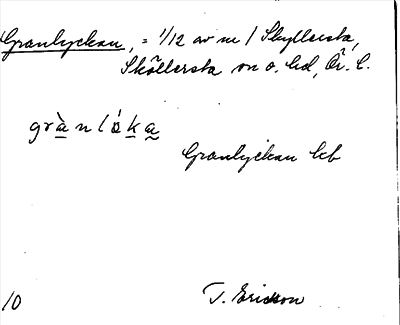 Granlyckan, = 1/12 av nr 1 Skyllersta,
Sköllersta sn o. hd, Ör. l.
grànlóka
Granlyckan kb
T. Ericsson
10